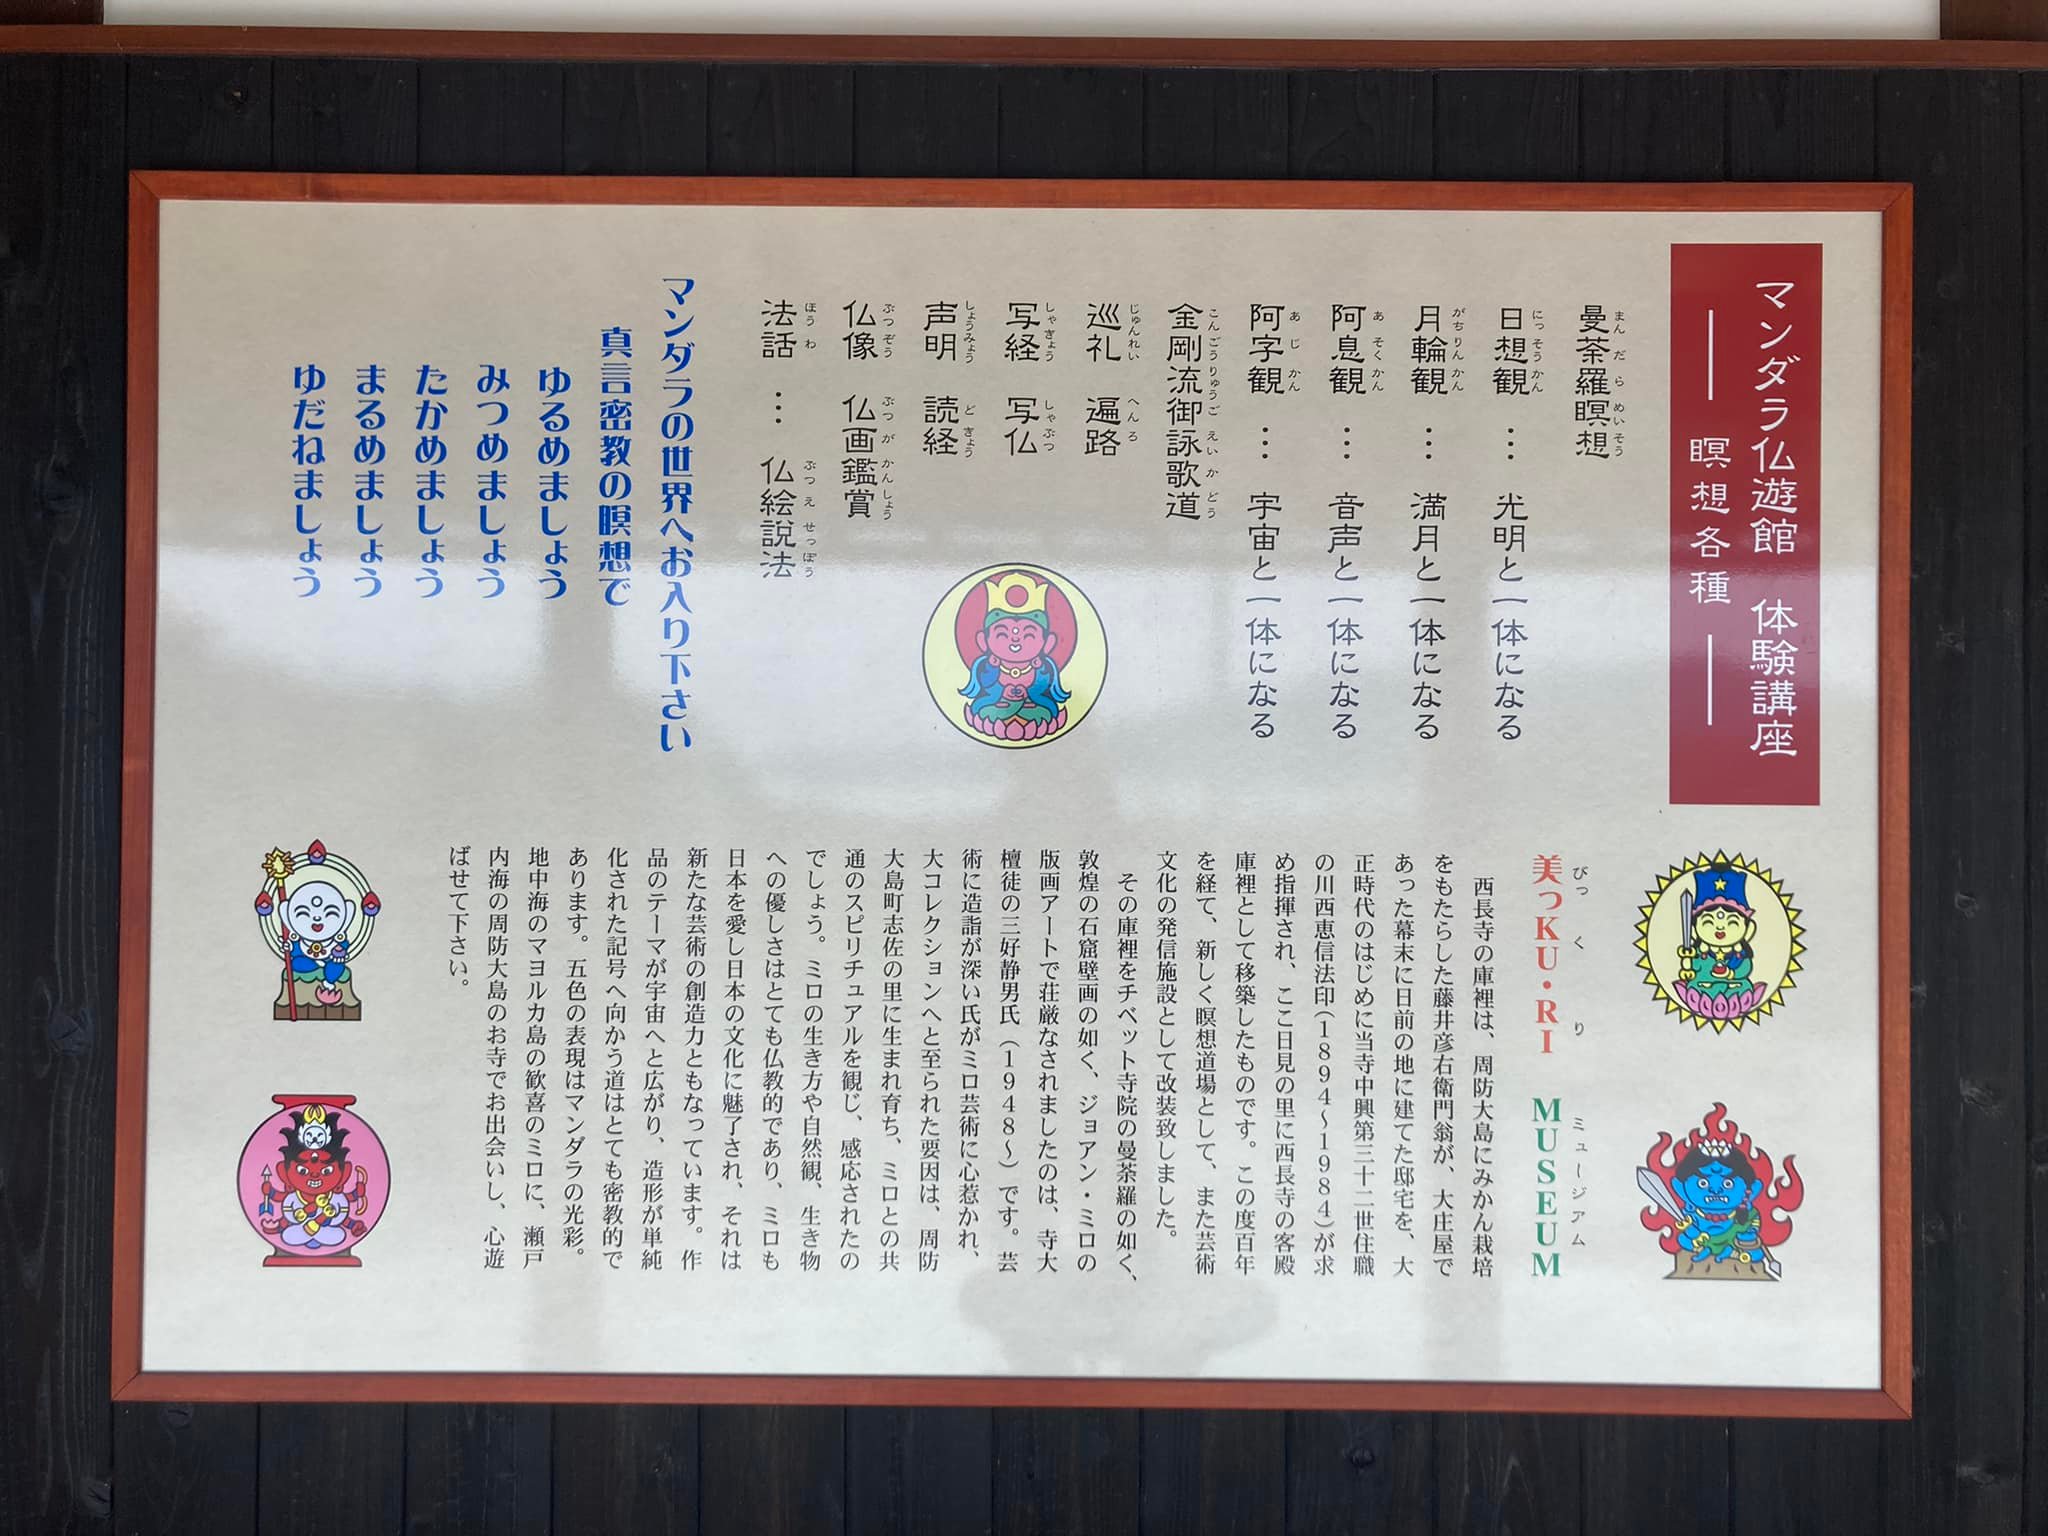 マンダラ仏遊館　体験講座
― 瞑想各種 ―
曼荼羅瞑想
まんだらめいそう
日想観 … 光明と一体になる
にっそうかん
月輪観 … 満月と一体になる
がちりんかん
阿息観 … 音声と一体になる
あそくかん
阿字観 … 宇宙と一体になる
あじかん
金剛流御詠歌道
こんごうりゅうごえいかどう
巡礼　遍路
じゅんれい　へんろ
写経　写仏
しゃきょう　しゃぶつ
声明　読経
しょうみょう　どきょう
仏像　仏画鑑賞
ぶつぞう　ぶつがかんしょう
法話 … 仏絵説法
ほうわ　ぶつえせっぽう
マンダラの世界へお入り下さい
真言密教の瞑想で
ゆるめましょう
みつめましょう
たかめましょう
まるめましょう
ゆだねましょう
美っKU・RI　MUSEUM
びっくり　ミュージアム
西長寺の庫裡は、周防大島にみかん栽培
をもたらした藤井彦右衛門翁が、大庄屋で
あった幕末に日前の地に建てた邸宅を、大
正時代のはじめに当寺中興第三十二世住職
の川西恵信法印（1894～1984）が求
め指揮され、ここ日見の里に西長寺の客殿
庫裡として移築したものです。この度百年
を経て、新しく瞑想道場として、また芸術
文化の発信施設として改装致しました。
その庫裡をチベット寺院の曼荼羅の如く、
敦煌の石窟壁画の如く、ジョアン・ミロの
版画アートで荘厳なされましたのは、寺大
檀徒の三好静男氏（1948～）です。芸
術に造詣が深い氏がミロ芸術に心惹かれ、
大コレクションへと至られた要因は、周防
大島町志佐の里に生まれ育ち、ミロとの共
通のスピリチュアルを観じ、感応されたの
でしょう。ミロの生き方や自然観、生き物
への優しさはとても仏教的であり、ミロも
日本を愛し日本の文化に魅了され、それは
新たな芸術の創造力ともなっています。作
品のテーマが宇宙へと広がり、造形が単純
化された記号へ向かう道はとても密教的で
あります。五色の表現はマンダラの光彩。
地中海のマヨルカ島の歓喜のミロに、瀬戸
内海の周防大島のお寺でお出会いし、心遊
ばせて下さい。